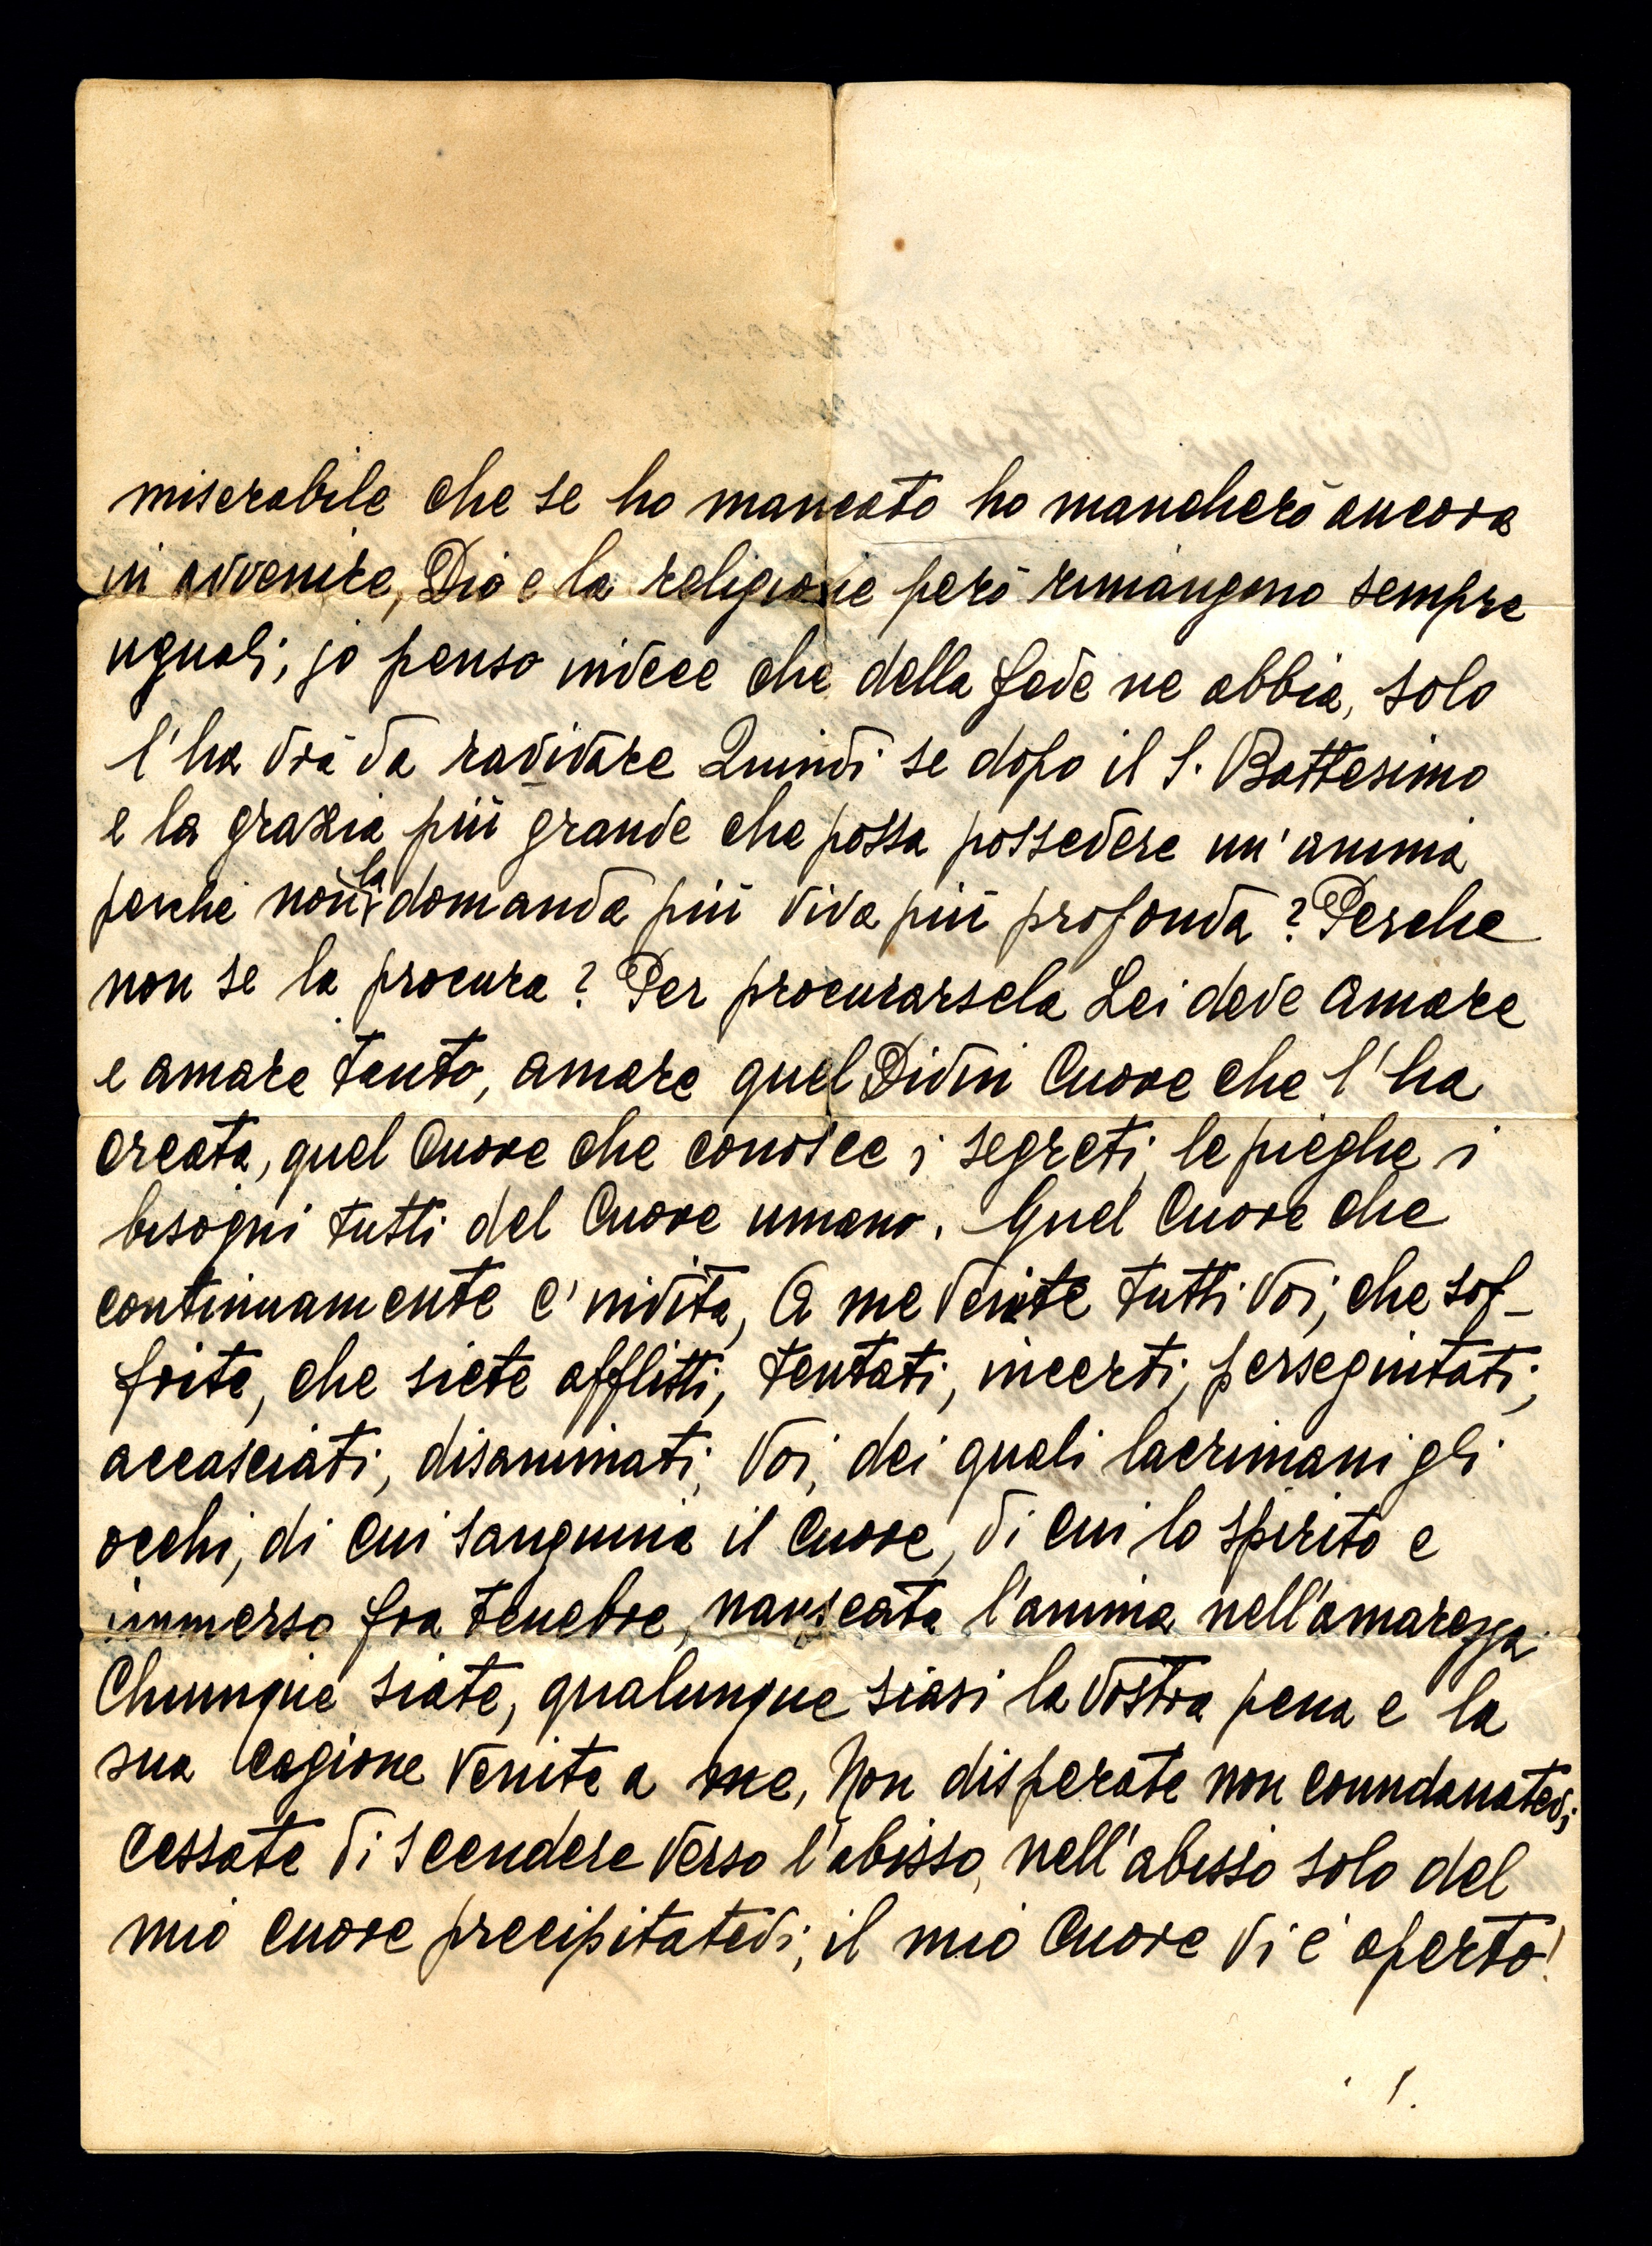 miserabile che se ho mancato ho mancherò ancora
in avvenire, Dio e la religione però rimangono sempre
uguali, jo penso invece che della fede ne abbia, solo
l'ha vrà da ravivare Quindi se dopo il S. Battesimo
e la grazia più grande che possa possedere un'anima
perchè non la domanda più viva più profonda? Perche
non se la procura? Per procurarsela Lei deve amare
e amare tanto, amare quel Divin Cuore che l'ha
creata, quel Cuore che conosce i segreti, le pieghe i
bisogni tutti del Cuore umano. Quel Cuore che
continuamente c'invita, A me venite tutti Voi, che sof-
frite, che siete afflitti, tentati, incerti, perseguitati,
accasciati, disanimati, Voi, dei quali lacrimani gli
occhi, di cui sanguina il Cuore, di cui lo spirito e
immerso fra tenebre, nauseata l'anima nell'amarezza
Chiunque siate, qualunque siasi la vostra pena e la
sua cagione venite a me, Non disperate non conndanatevi,
Cessate di scendere verso l'abisso, nell'abisso solo del
mio cuore precipitatevi, il mio Cuore vi é aperto!